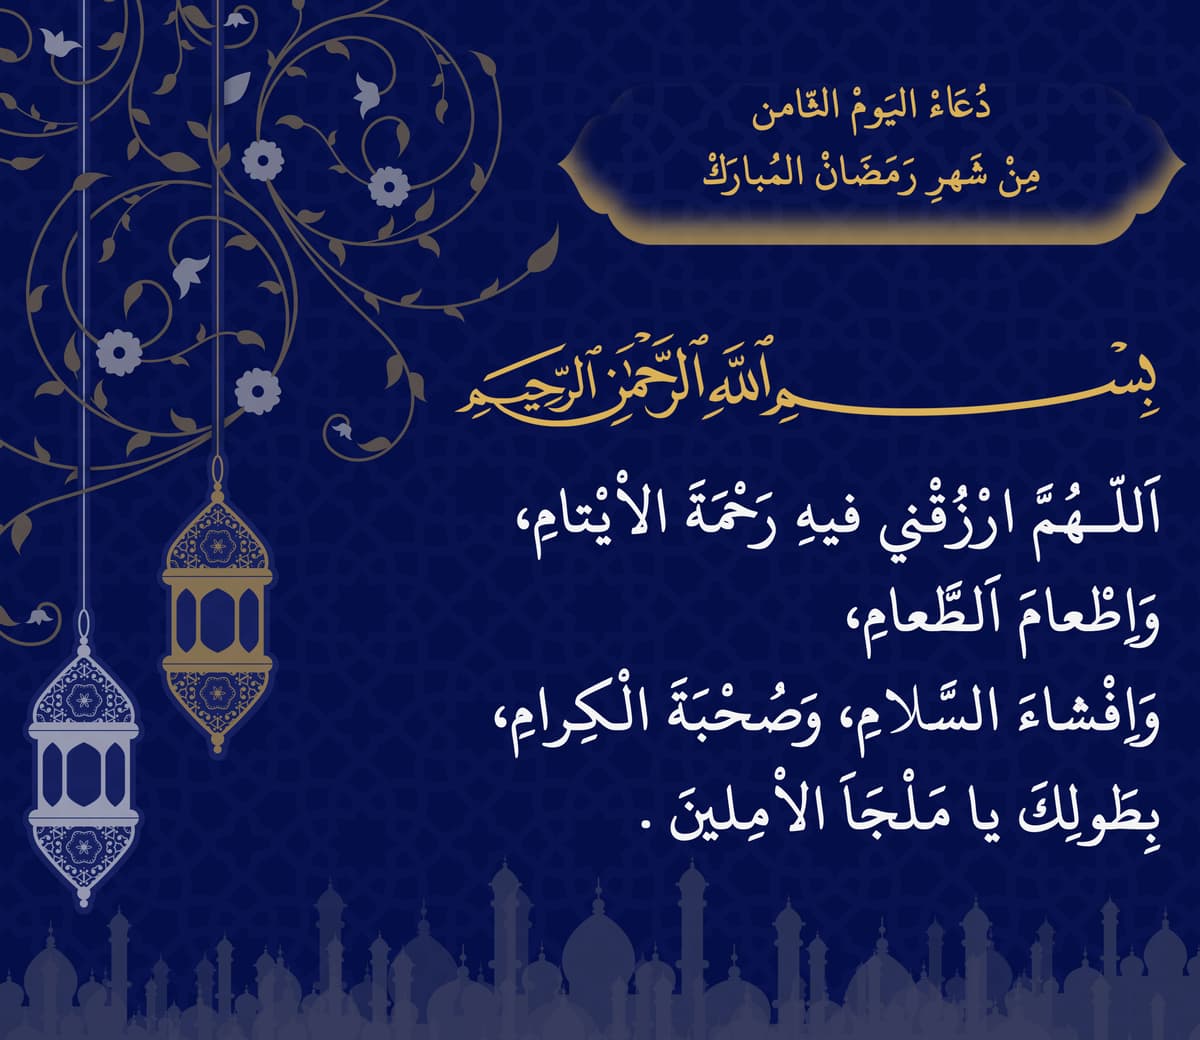 دُعَاءْ اليَومْ الثّامن
مِنْ شَهرِ رَمَضَانْ المُبارَكْ
بِسْمِ اللَّهِ الرَّحْمٰنِ الرَّحِيمِ
اَللّـهُمَّ ارْزُقْني فيهِ رَحْمَةَ الاْيْتامِ،
وَاِطْعامَ اَلطَّعامِ،
وَاِفْشاءَ السَّلامِ، وَصُحْبَةَ الْكِرامِ،
بِطَولِكَ يا مَلْجَاَ الاْمِلينَ .